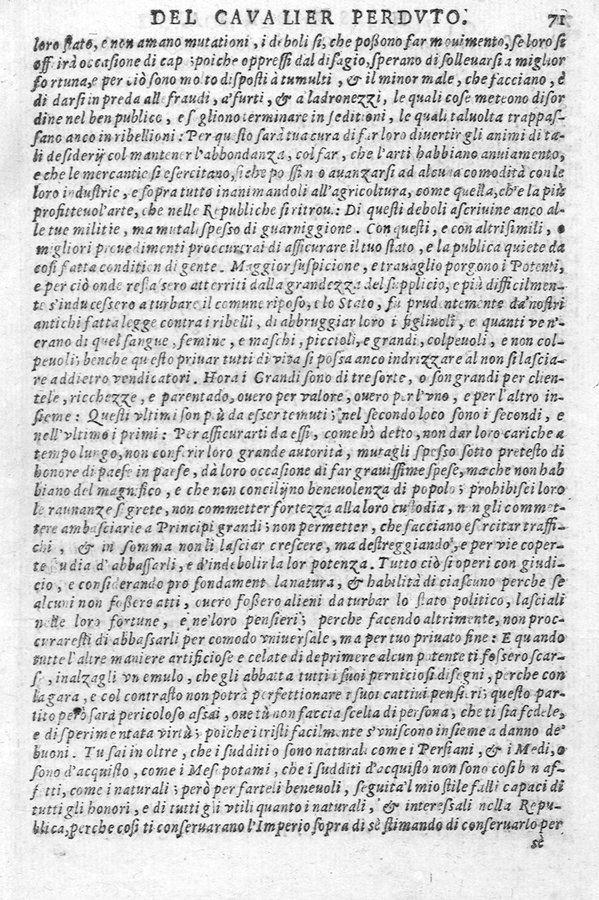 DEL CAVALIER PERDVTO. 71
loro stato, e non amano mutationi, i deboli si, che possono far mouimento, se loro si
offirà occasione di cap ; poiche oppressi dal disagio, sperano di solleuarsi a miglior
fortuna, e per ciò sono mo to disposti à tumulti, & il minor male, che facciano, è
di darsi in preda alle fraudi, a furti, & a ladronezzi, le quali cose metono disor
dine nel ben publico, e s gliono terminare in seditioni, le quali taluolta trappas-
sano anco in ribellioni: Per questo sarà tua cura di far loro diuertir gli animi di ta-
li desiderij col mantener l'abbondanza, col far, che l'arti habbiano anuiamento,
e che le mercantie si esercitano, siche possino auanzarsi ad alcuna comodità con le
loro industrie, e sopra tutto inanimandoli all'agricoltura, come quella, ch'e la più
profitteuol'arte, che nelle Republiche si ritroui: Di questi deboli ascriuine anco al-
le tue militie, ma mutale spesso di guarniggione. Con questi, e con altri simili, o
migliori prouedimenti proccurerai di assicurare il tuo stato, e la publica quiete da
cosi fatta condition di gente. Maggior suspicione, e trauaglio porgono i Potenti,
e per ciò onde restassero atterriti dalla grandezza del supplicio, e più difficilmen-
te s'inducessero a turbare il comune riposo, e lo Stato, fu prudentemente da nostri
antichi fatta legge contra i ribelli, di abbruggiar loro i figliuoli, e quanti ve n'-
erano di quel sangue, femine, e maschi, piccioli, e grandi, colpeuoli, e non col-
peuoli; benche questo priuar tutti di vita si possa anco indrizzare al non si lascia-
re addietro vendicatori. Hora i Grandi sono di tre sorte, o son grandi per clien-
tele, ricchezze, e parentado, ouero per valore, ouero per l'vno, e per l'altro in-
sieme: Questi vltimi son più da esser temuti; nel secondo loco sono i secondi, e
nell'vltimo i primi: Per assicurarti da essi, come hò detto, non dar loro cariche a
tempo lungo, non conferir loro grande autorità, mutagli spesso sotto pretesto di
honore di paese in paese, dà loro occasione di far grauissime spese, ma che non hab
biano del magnifico, e che non concilijno beneuolenza di popolo; prohibisci loro
le raunanze segrete, non commetter fortezza alla loro custodia, non gli commet-
tere ambasciarie a Principi grandi; non permetter, che facciano esercitar traffi-
chi, & in somma non li lasciar crescere, ma destreggiando, e per vie coper-
te studia d'abbassarli, e d'indebolir la lor potenza. Tutto ciò si operi con giudi-
cio, e considerando pro fondament la natura, & habilità di ciascuno perche se
alcuni non fossero atti, ouero fossero alieni da turbar lo stato politico, lasciali
nelle loro fortune, e ne'loro pensieri; perche facendo altrimente, non proc-
curaresti di abbassarli per comodo vniuersale, ma per tuo priuato fine: E quando
tutte l'altre maniere artificiose e celate di deprimere alcun potente ti fossero scar-
se, inalzagli vn emulo, che gli abbatta tutti i suoi perniciosi disegni, perche con
la gara, e col contrasto non potrà perfettionare i suoi cattiui pensieri; questo par-
tito però sarà pericoloso assai, oue tù non faccia scelta di persona, che ti sia fedele,
e di sperimentata virtù; poiche i tristi facilmente s'vniscono insieme a danno de'
buoni. Tu sai in oltre, che i sudditi o sono naturali come i Persiani, & i Medi, o
sono d'acquisto, come i Mesopotami, che i sudditi d'acquisto non sono cosi b n af-
f tti, come i naturali; però per farteli beneuoli, seguita'l mio stile falli capaci di
tutti gli honori, e di tutti gli vtili quanto i naturali, & interessali nella Repu-
blica, perche cosi ti conseruarano l'Imperio sopra di sè stimando di conseruarlo per
sè